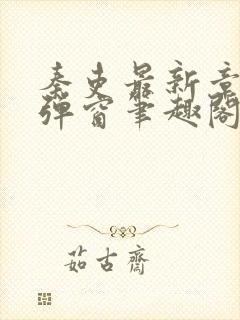 秦吏最新章
弹窗笔趣阁
茹古斋